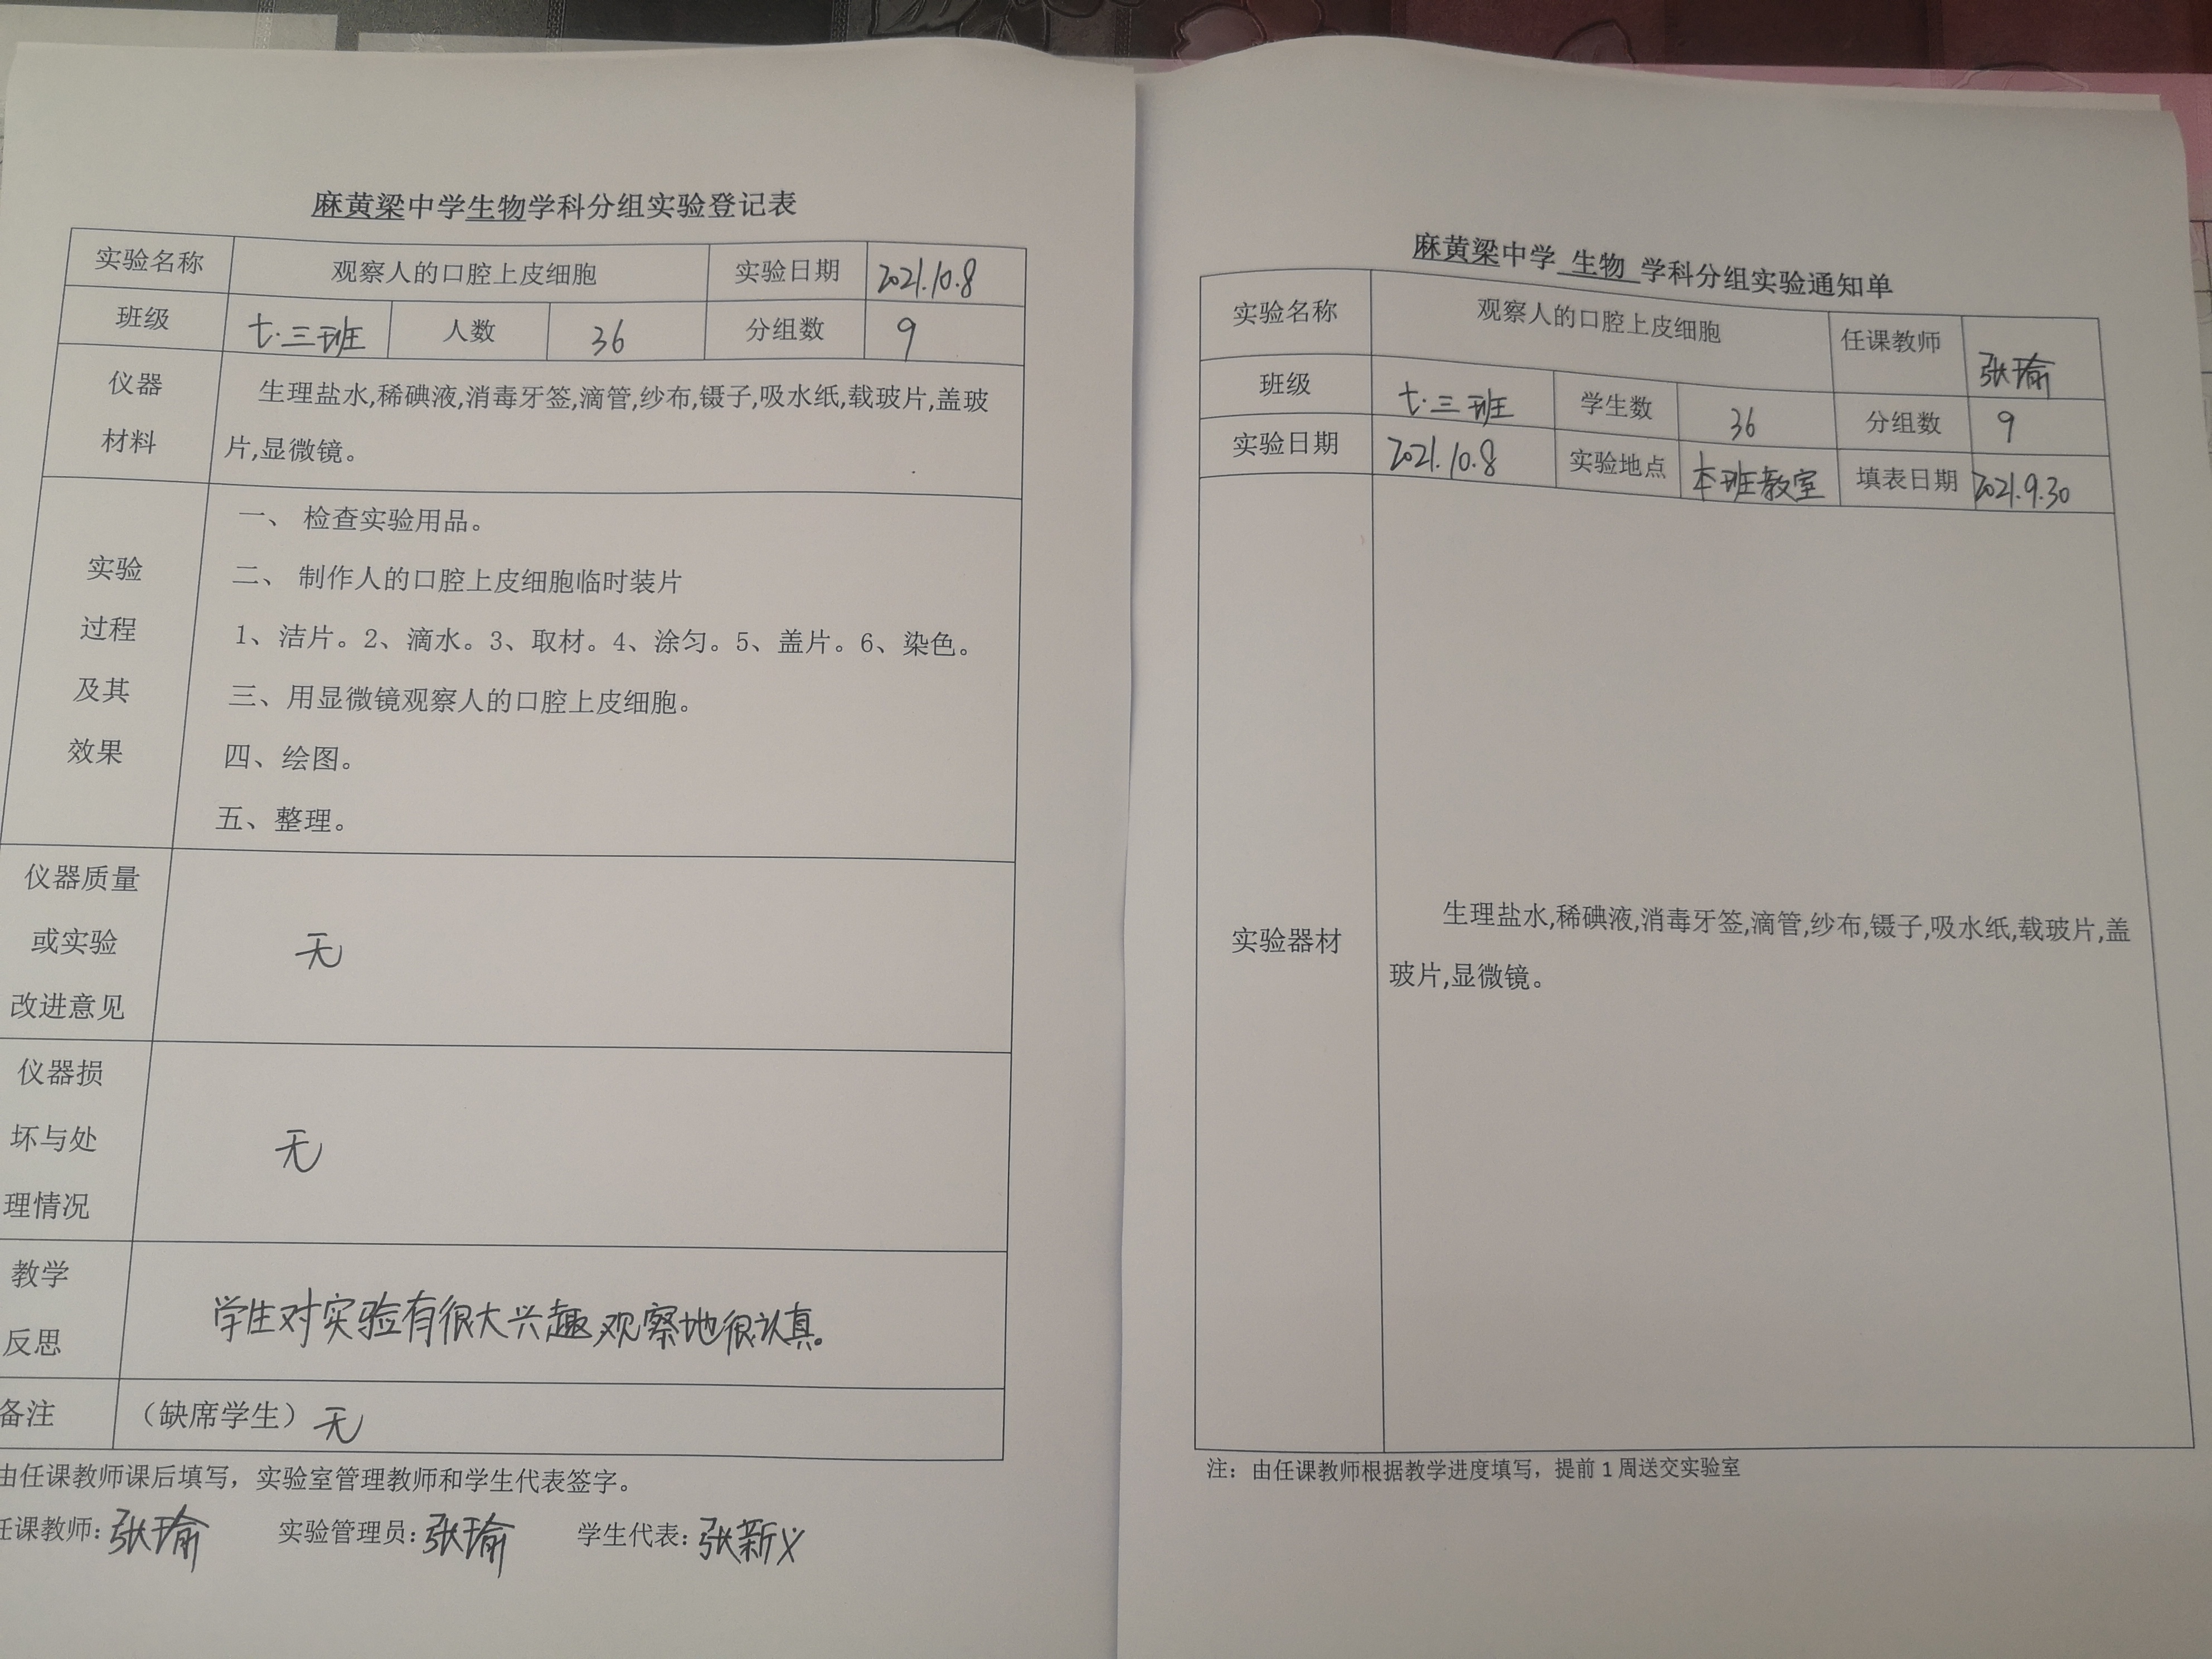 麻黄梁中学生物学科分组实验登记表
实验名称 观察人的口腔上皮细胞 实验日期 2021.10.8
班级 七.三班 人数 36 分组数 9
仪器
材料
生理盐水,稀碘液,消毒牙签,滴管,纱布,镊子,吸水纸,载玻片,盖玻
片,显微镜。
实验
过程
及其
效果
一、 检查实验用品。
二、 制作人的口腔上皮细胞临时装片
1、洁片。2、滴水。3、取材。4、涂匀。5、盖片。6、染色。
三、用显微镜观察人的口腔上皮细胞。
四、绘图。
五、整理。
仪器质量
或实验
改进意见
无
仪器损
坏与处
理情况
无
教学
反思
学生对实验有很大兴趣,观察地很认真。
备注 （缺席学生）无
由任课教师课后填写，实验室管理教师和学生代表签字。
任课教师:张瑜 实验管理员:张瑜 学生代表:张新义
麻黄梁中学 生物 学科分组实验通知单
实验名称 观察人的口腔上皮细胞 任课教师 张瑜
班级 七.三班 学生数 36 分组数 9
实验日期 2021.10.8 实验地点 本班教室 填表日期 2021.9.30
实验器材
生理盐水,稀碘液,消毒牙签,滴管,纱布,镊子,吸水纸,载玻片,盖
玻片,显微镜。
注：由任课教师根据教学进度填写，提前 1 周送交实验室